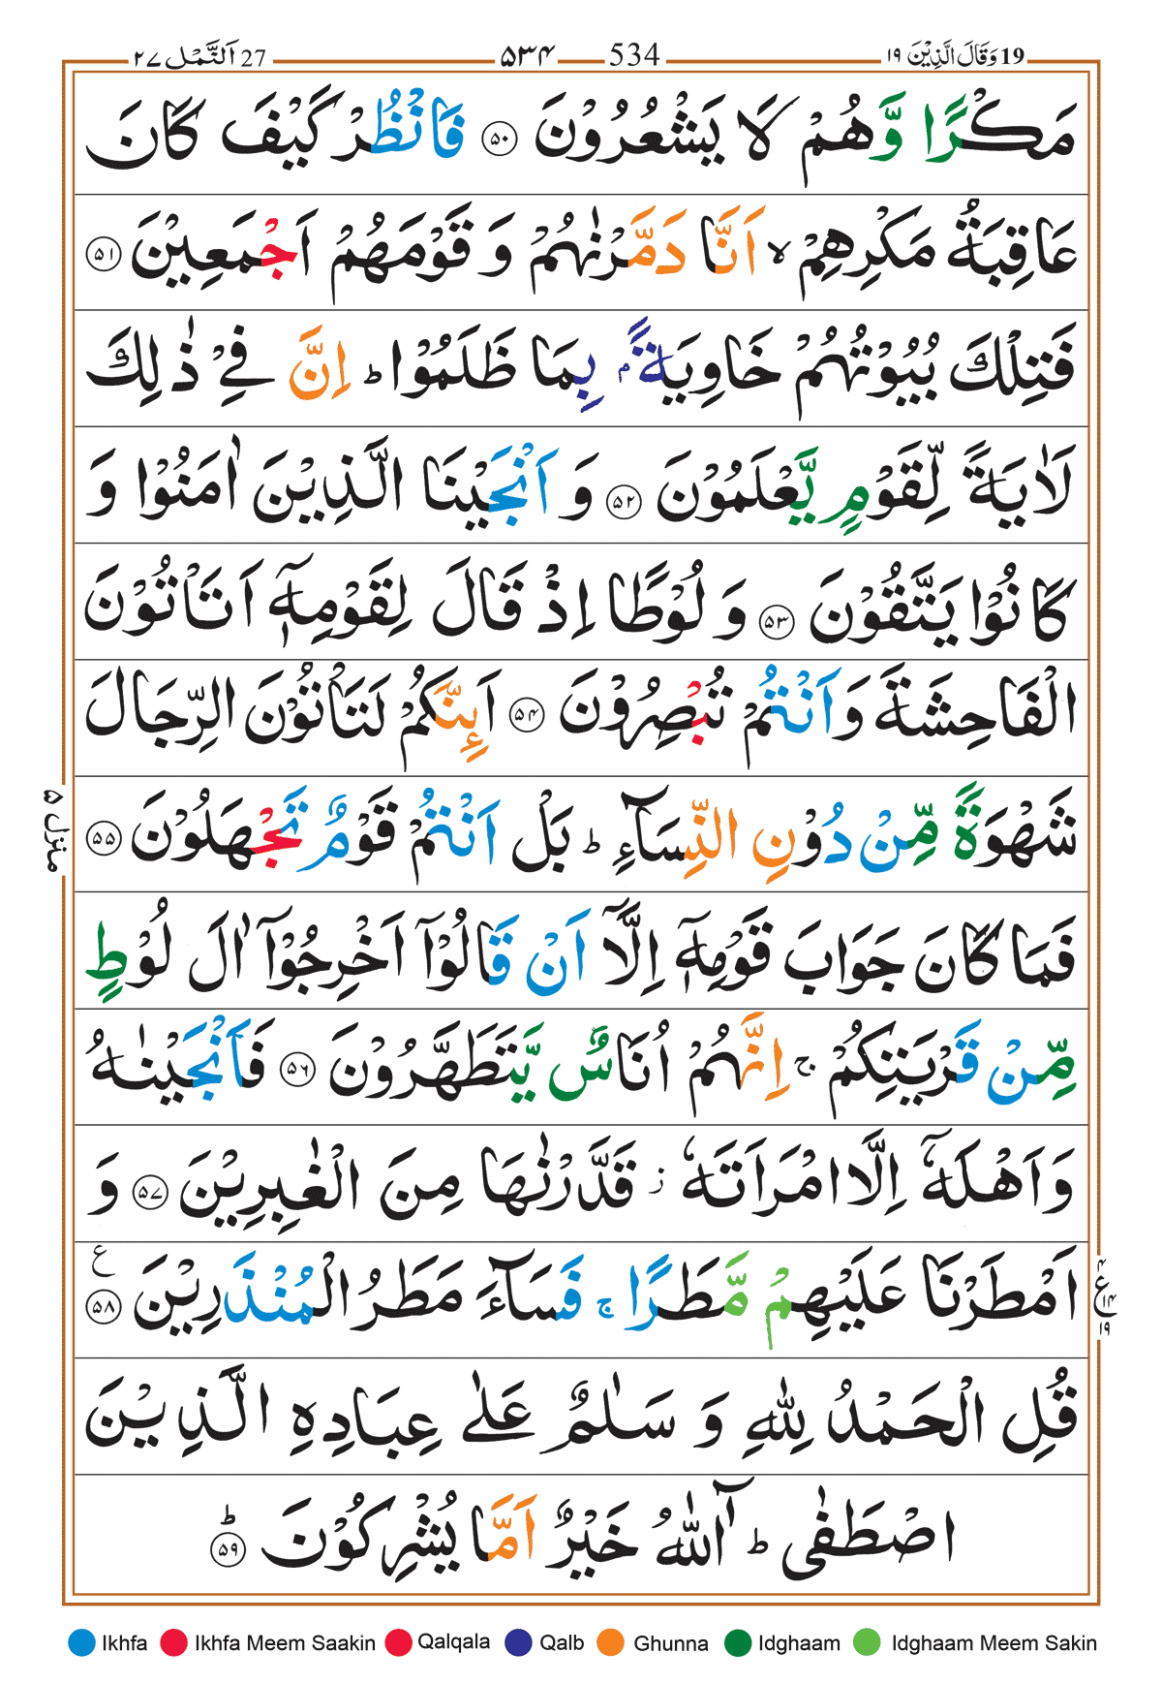 19 وَقَالَ الَّذِيْنَ ١٩ 534 ۵۳۴ 27 اَلنَّمْل ٢٧
مَكْرًا وَّهُمْ لَا يَشْعُرُوْنَ ۵۰ فَانْظُرْ كَيْفَ كَانَ
عَاقِبَةُ مَكْرِهِمْ ۙ اَنَّا دَمَّرْنٰهُمْ وَ قَوْمَهُمْ اَجْمَعِيْنَ ۵۱
فَتِلْكَ بُيُوْتُهُمْ خَاوِيَةًۢ بِمَا ظَلَمُوْا ؕ اِنَّ فِيْ ذٰلِكَ
لَاٰيَةً لِّقَوْمٍ يَّعْلَمُوْنَ ۵۲ وَ اَنْجَيْنَا الَّذِيْنَ اٰمَنُوْا وَ
كَانُوْا يَتَّقُوْنَ ۵۳ وَ لُوْطًا اِذْ قَالَ لِقَوْمِهٖۤ اَتَاْتُوْنَ
الْفَاحِشَةَ وَاَنْتُمْ تُبْصِرُوْنَ ۵۴ اَئِنَّكُمْ لَتَاْتُوْنَ الرِّجَالَ
شَهْوَةً مِّنْ دُوْنِ النِّسَآءِ ؕ بَلْ اَنْتُمْ قَوْمٌ تَجْهَلُوْنَ ۵۵
فَمَا كَانَ جَوَابَ قَوْمِهٖۤ اِلَّاۤ اَنْ قَالُوْۤا اَخْرِجُوْۤا اٰلَ لُوْطٍ
مِّنْ قَرْيَتِكُمْ ۚ اِنَّهُمْ اُنَاسٌ يَّتَطَهَّرُوْنَ ۵۶ فَاَنْجَيْنٰهُ
وَاَهْلَهٗۤ اِلَّا امْرَاَتَهٗ ز قَدَّرْنٰهَا مِنَ الْغٰبِرِيْنَ ۵۷ وَ
اَمْطَرْنَا عَلَيْهِمْ مَّطَرًا ۚ فَسَآءَ مَطَرُ الْمُنْذَرِيْنَ ۵۸ ع
قُلِ الْحَمْدُ لِلّٰهِ وَ سَلٰمٌ عَلٰى عِبَادِهِ الَّذِيْنَ
اصْطَفٰى ؕ آٰللّٰهُ خَيْرٌ اَمَّا يُشْرِكُوْنَ ؕ ۵۹
منزل ۵
۴ ع ۱۴ ۱۹
Ikhfa Ikhfa Meem Saakin Qalqala Qalb Ghunna Idghaam Idghaam Meem Sakin